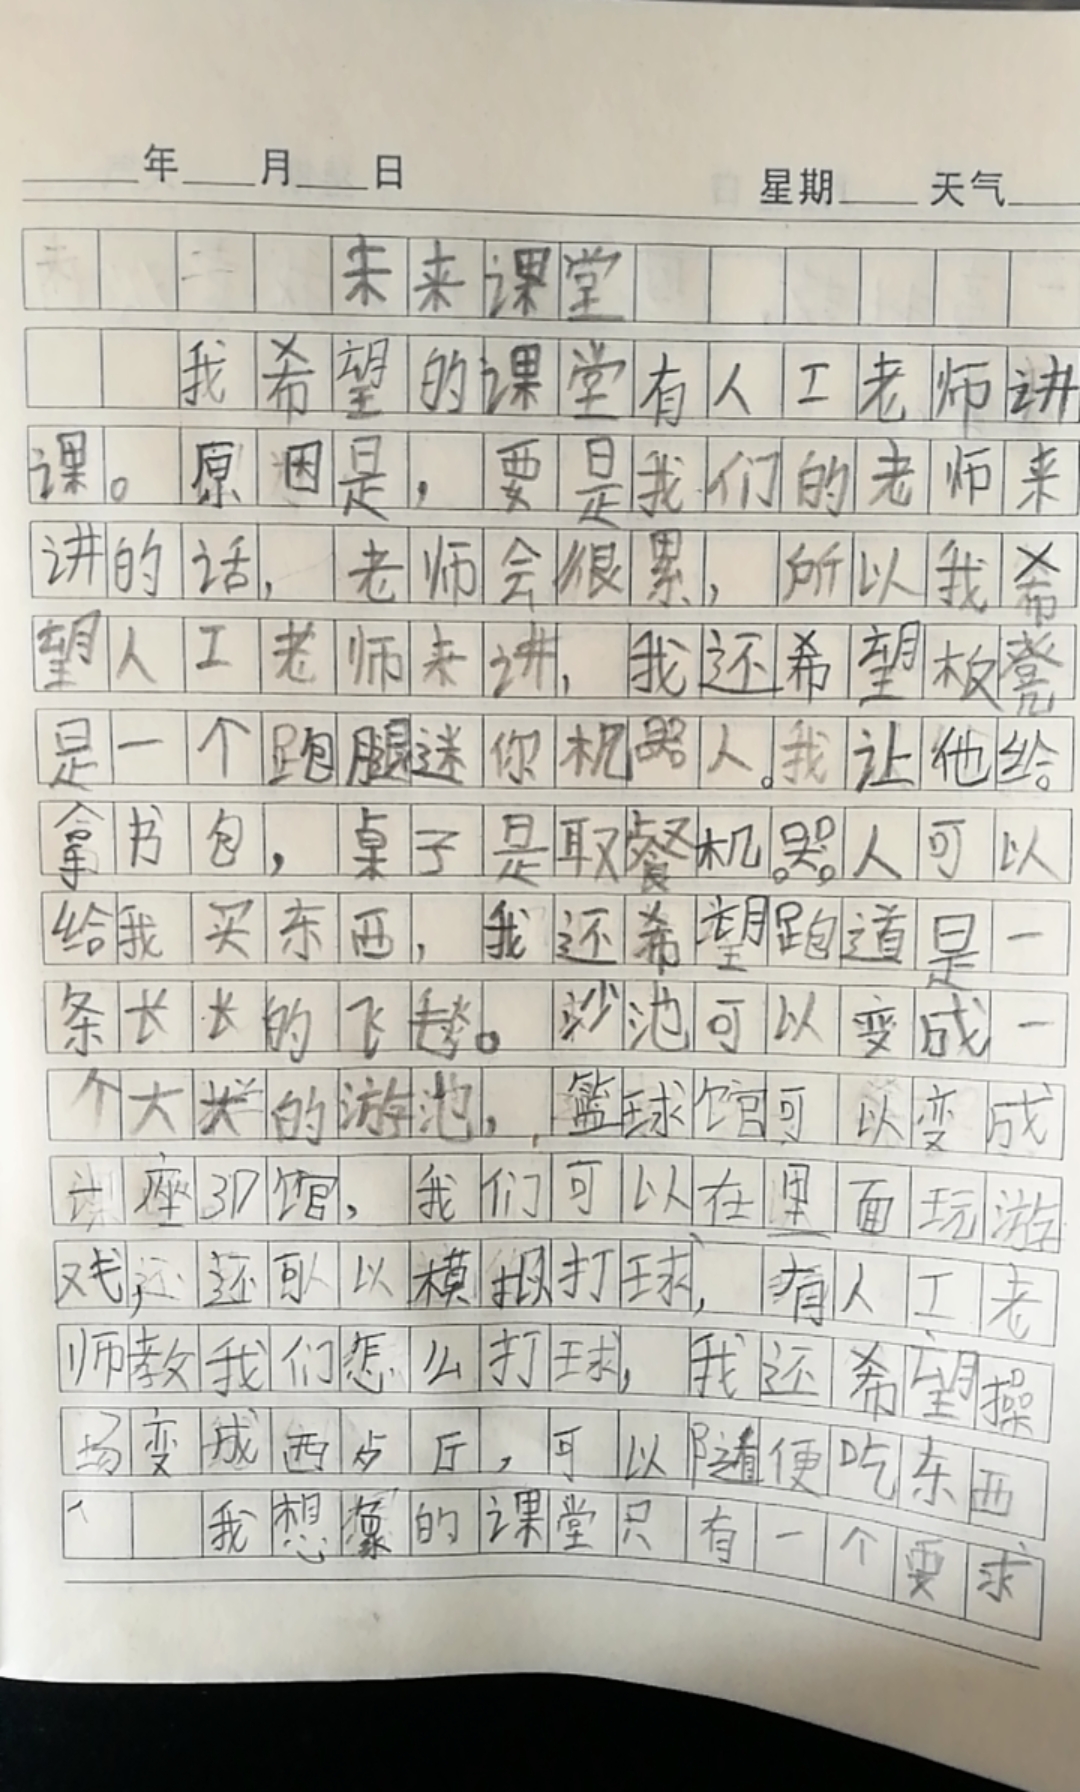 年 月 日 星期 天气
未来课堂
我希望的课堂有人工老师讲
课。原因是,要是我们的老师来
讲的话,老师会很累,所以我希
望人工老师来讲,我还希望板凳
是一个跑腿迷你机器人。我让他给
拿书包,桌子是取餐机器人可以
给我买东西,我还希望跑道是一
条长长的飞毯。沙池可以变成一
个大大的游池,篮球馆可以变成
一座3D馆,我们可以在里面玩游
戏,还可以模拟打球,有人工老
师教我们怎么打球,我还希望操
场变成西点厅,可以随便吃东西
我想象的课堂只有一个要求